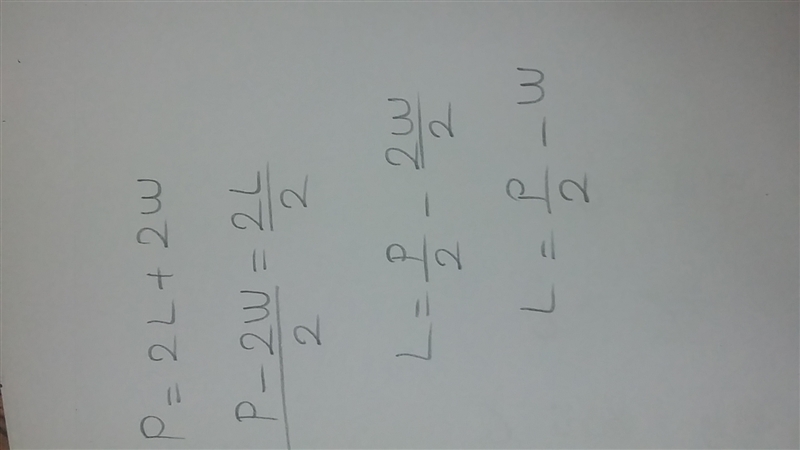 P = 2L + 2W
P - 2W / 2 = 2L / 2
L = P/2 - 2W/2
L = P/2 - W